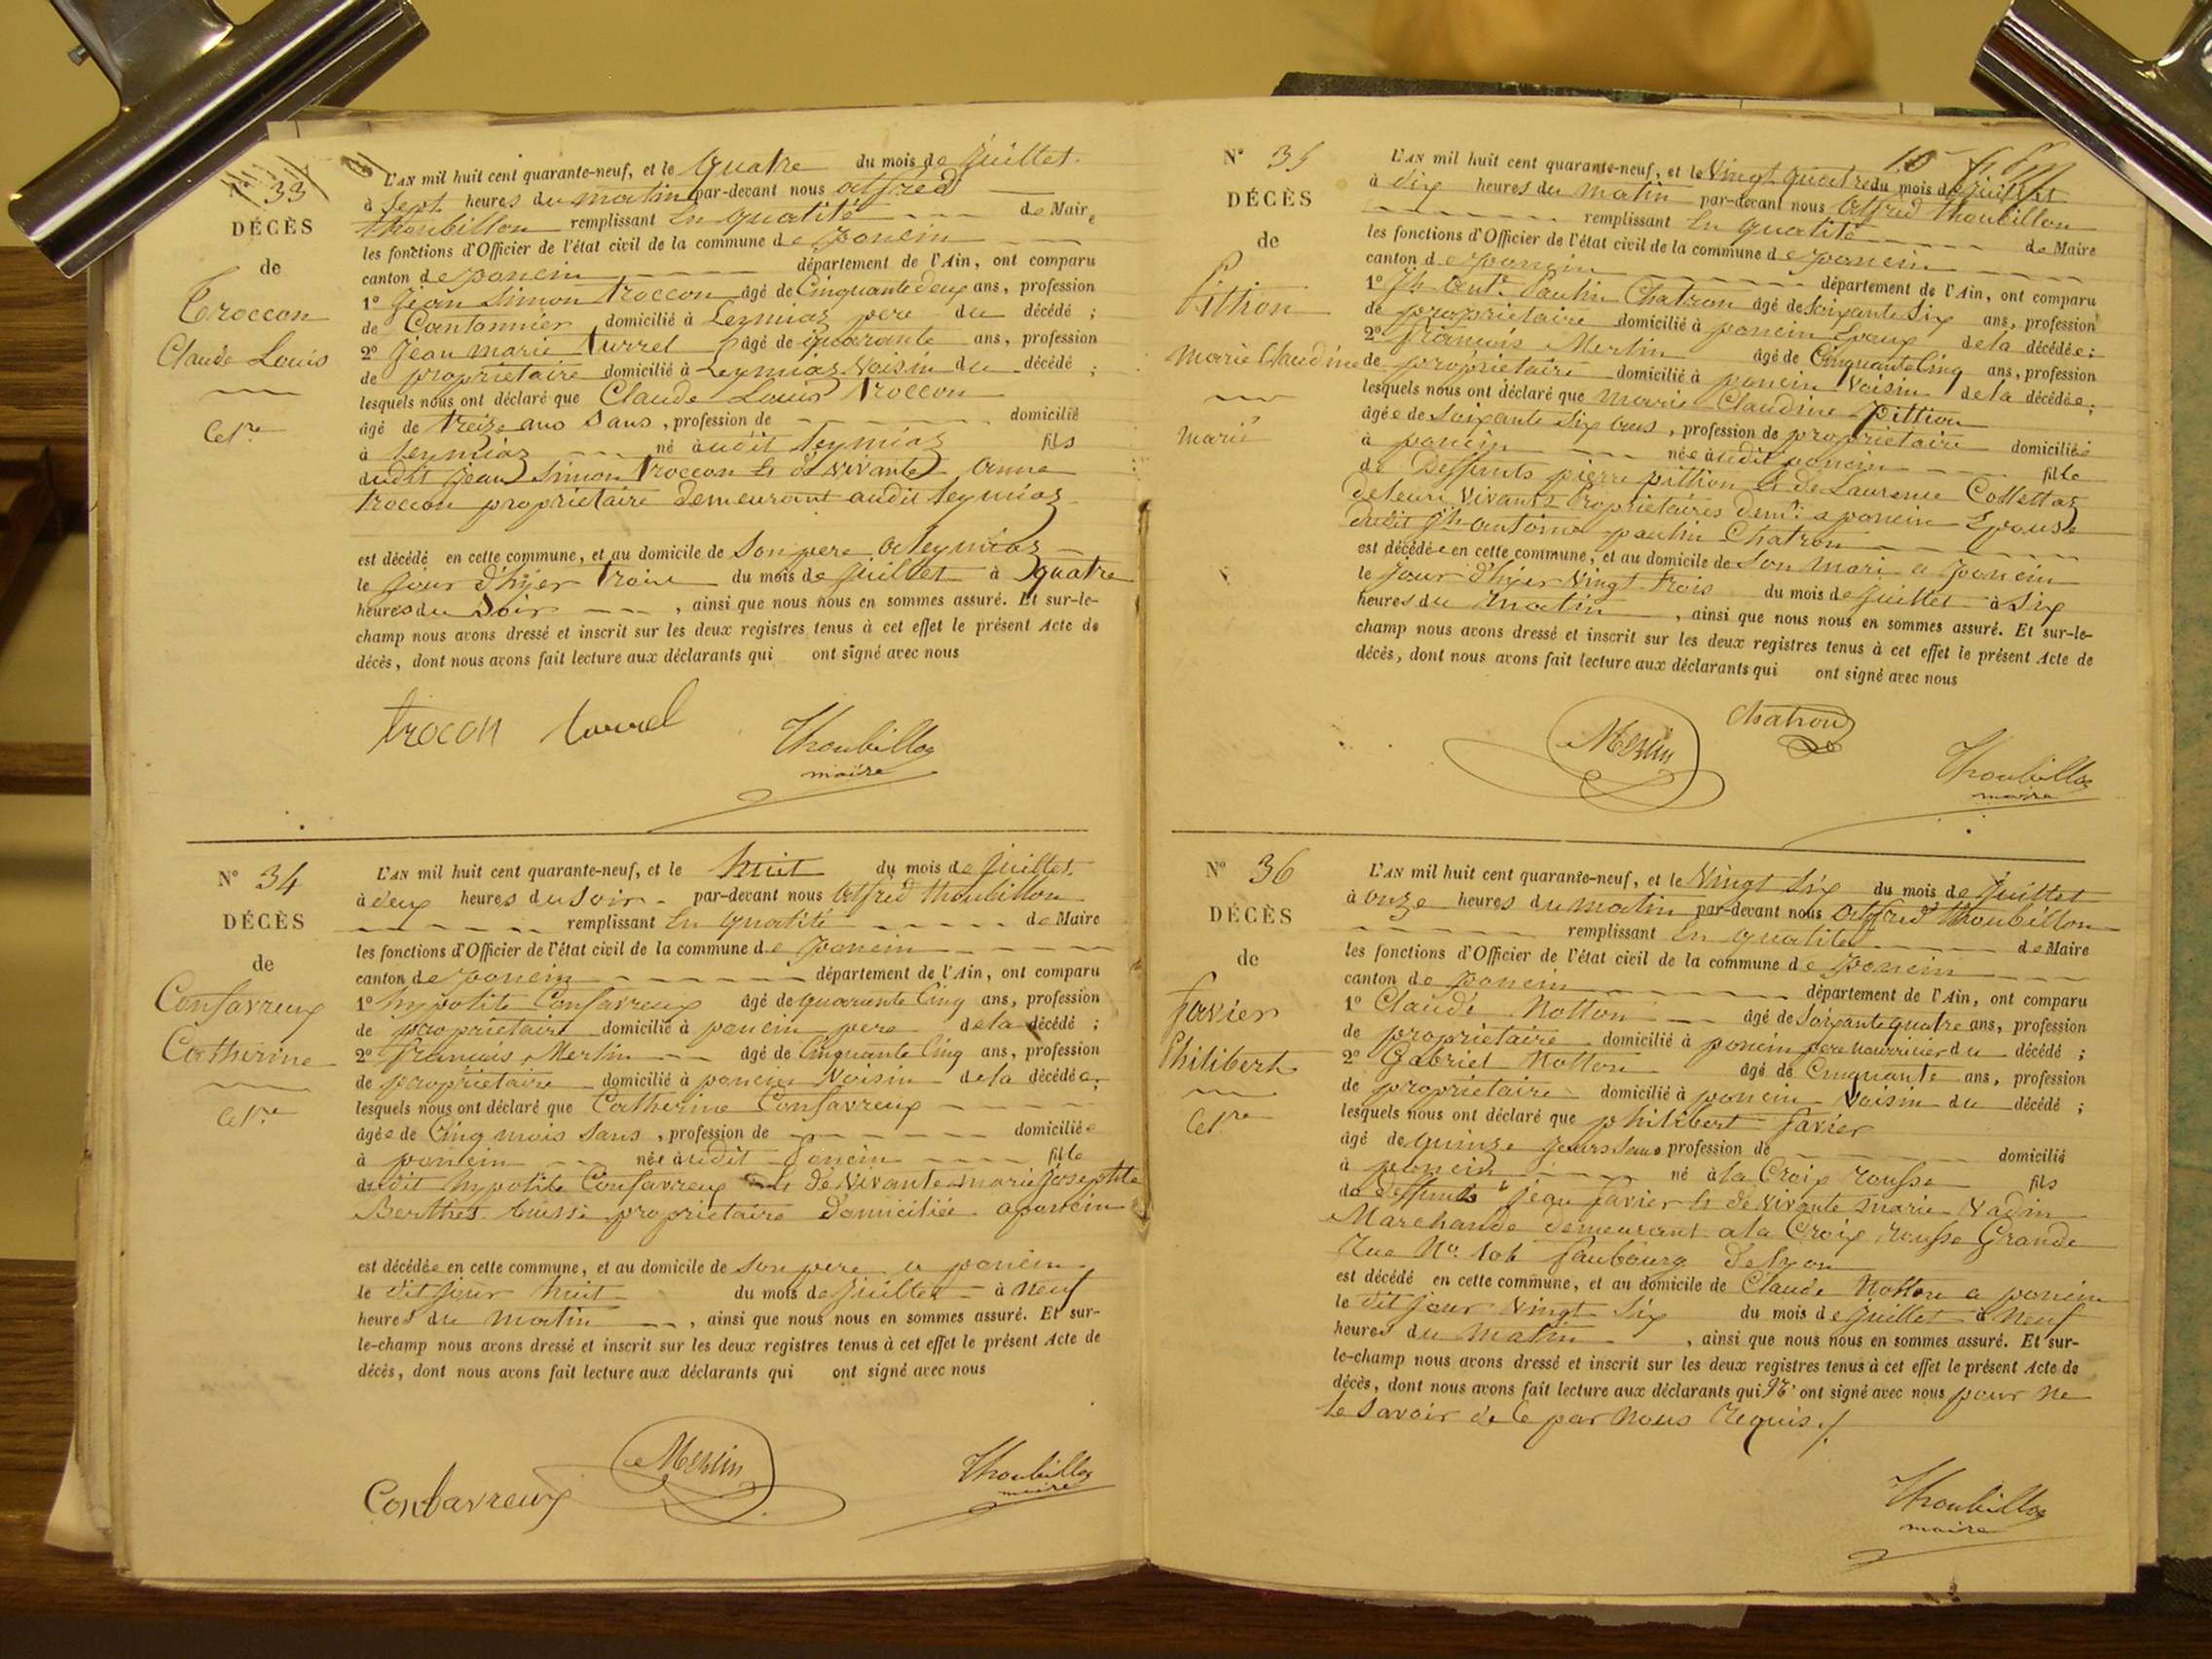 N° 33
DÉCÈS
de
Troccon
Claude Louis
Cel.re
L'AN mil huit cent quarante-neuf, et le quatre du mois de juillet
à sept heures du matin par-devant nous alfred
thoubillon remplissant en qualité de Maire
les fonctions d'Officier de l'état civil de la commune de poncin
canton de poncin département de l'Ain, ont comparu
1° jean simon troccon âgé de Cinquante deux ans, profession
de Cantonnier domicilié à Leymiaz pere du décédé ;
2° jean marie turrel âgé de quarante ans, profession
de propriétaire domicilié à Leymiaz voisin du décédé ;
lesquels nous ont déclaré que Claude Louis troccon
âgé de treize ans sans, profession de domicilié
à Leymiaz né audit Leymiaz fils
dudit jean simon troccon et de vivante anne
troccon propriétaire demeurant audit Leymiaz
est décédé en cette commune, et au domicile de son pere a Leymiaz
le jour d'hyer trois du mois de juillet à quatre
heures du soir, ainsi que nous nous en sommes assuré. Et sur-le-
champ nous avons dressé et inscrit sur les deux registres tenus à cet effet le présent Acte de
décès, dont nous avons fait lecture aux déclarants qui ont signé avec nous
trocon turrel Thoubillon
maire
N° 34
DÉCÈS
de
Confavreux
Catherine
Cel.re
L'AN mil huit cent quarante-neuf, et le huit du mois de juillet
à deux heures du soir par-devant nous alfred thoubillon
remplissant en qualité de Maire
les fonctions d'Officier de l'état civil de la commune de poncin
canton de poncin département de l'Ain, ont comparu
1° hypolite Confavreux âgé de quarante Cinq ans, profession
de propriétaire domicilié à poncin pere de la décédé ;
2° francois Merlin âgé de Cinquante Cinq ans, profession
de propriétaire domicilié à poncin voisin de la décédée ;
lesquels nous ont déclaré que Catherine Confavreux
âgée de Cinq mois sans, profession de domiciliée
à poncin née audit poncin fille
dudit hypolite Confavreux et de vivante marie josephte
Berthet aussi propriétaire domiciliée a poncin
est décédée en cette commune, et au domicile de son pere a poncin
le dit jour huit du mois de juillet à neuf
heures du matin, ainsi que nous nous en sommes assuré. Et sur-
le-champ nous avons dressé et inscrit sur les deux registres tenus à cet effet le présent Acte de
décès, dont nous avons fait lecture aux déclarants qui ont signé avec nous
Confavreux Merlin Thoubillon
maire
N° 35
DÉCÈS
de
Pittion
Marie Claudine
marié
L'AN mil huit cent quarante-neuf, et le vingt quatre du mois de juillet
à dix heures du matin par-devant nous alfred thoubillon
remplissant en qualité de Maire
les fonctions d'Officier de l'état civil de la commune de poncin
canton de poncin département de l'Ain, ont comparu
1° jh ant.e paulin Chatron âgé de soixante six ans, profession
de propriétaire domicilié à poncin Epoux de la décédée ;
2° francois Merlin âgé de Cinquante Cinq ans, profession
de propriétaire domicilié à poncin voisin de la décédée ;
lesquels nous ont déclaré que marie Claudine pittion
âgée de soixante six ans, profession de propriétaire domiciliée
à poncin née audit poncin fille
de Deffunts pierre pittion et de Laurence Collettaz
de leurs vivants propriétaires dem.t a poncin Epouse
dudit jh antoine paulin Chatron
est décédée en cette commune, et au domicile de son mari a poncin
le jour d'hyer vingt trois du mois de juillet à six
heures du matin, ainsi que nous nous en sommes assuré. Et sur-le-
champ nous avons dressé et inscrit sur les deux registres tenus à cet effet le présent Acte de
décès, dont nous avons fait lecture aux déclarants qui ont signé avec nous
Merlin Chatron Thoubillon
maire
N° 36
DÉCÈS
de
favier
Philibert
Cel.re
L'AN mil huit cent quarante-neuf, et le vingt six du mois de juillet
à onze heures du matin par-devant nous alfred thoubillon
remplissant en qualité de Maire
les fonctions d'Officier de l'état civil de la commune de poncin
canton de poncin département de l'Ain, ont comparu
1° Claude Notton âgé de soixante quatre ans, profession
de propriétaire domicilié à poncin pere nourricier du décédé ;
2° Gabriel Notton âgé de Cinquante ans, profession
de propriétaire domicilié à poncin voisin du décédé ;
lesquels nous ont déclaré que philibert favier
âgé de quinze jours sans profession de domicilié
à poncin né à la Croix rousse fils
de deffunt jean favier et de vivante marie Nadin
Marchande demeurant a la Croix rousse Grande
rue N° 106 faubourg de Lyon
est décédé en cette commune, et au domicile de Claude Notton a poncin
le dit jour vingt six du mois de juillet à neuf
heures du matin, ainsi que nous nous en sommes assuré. Et sur-
le-champ nous avons dressé et inscrit sur les deux registres tenus à cet effet le présent Acte de
décès, dont nous avons fait lecture aux déclarants qui n' ont signé avec nous pour ne
le savoir de ce par nous requis ./.
Thoubillon
maire